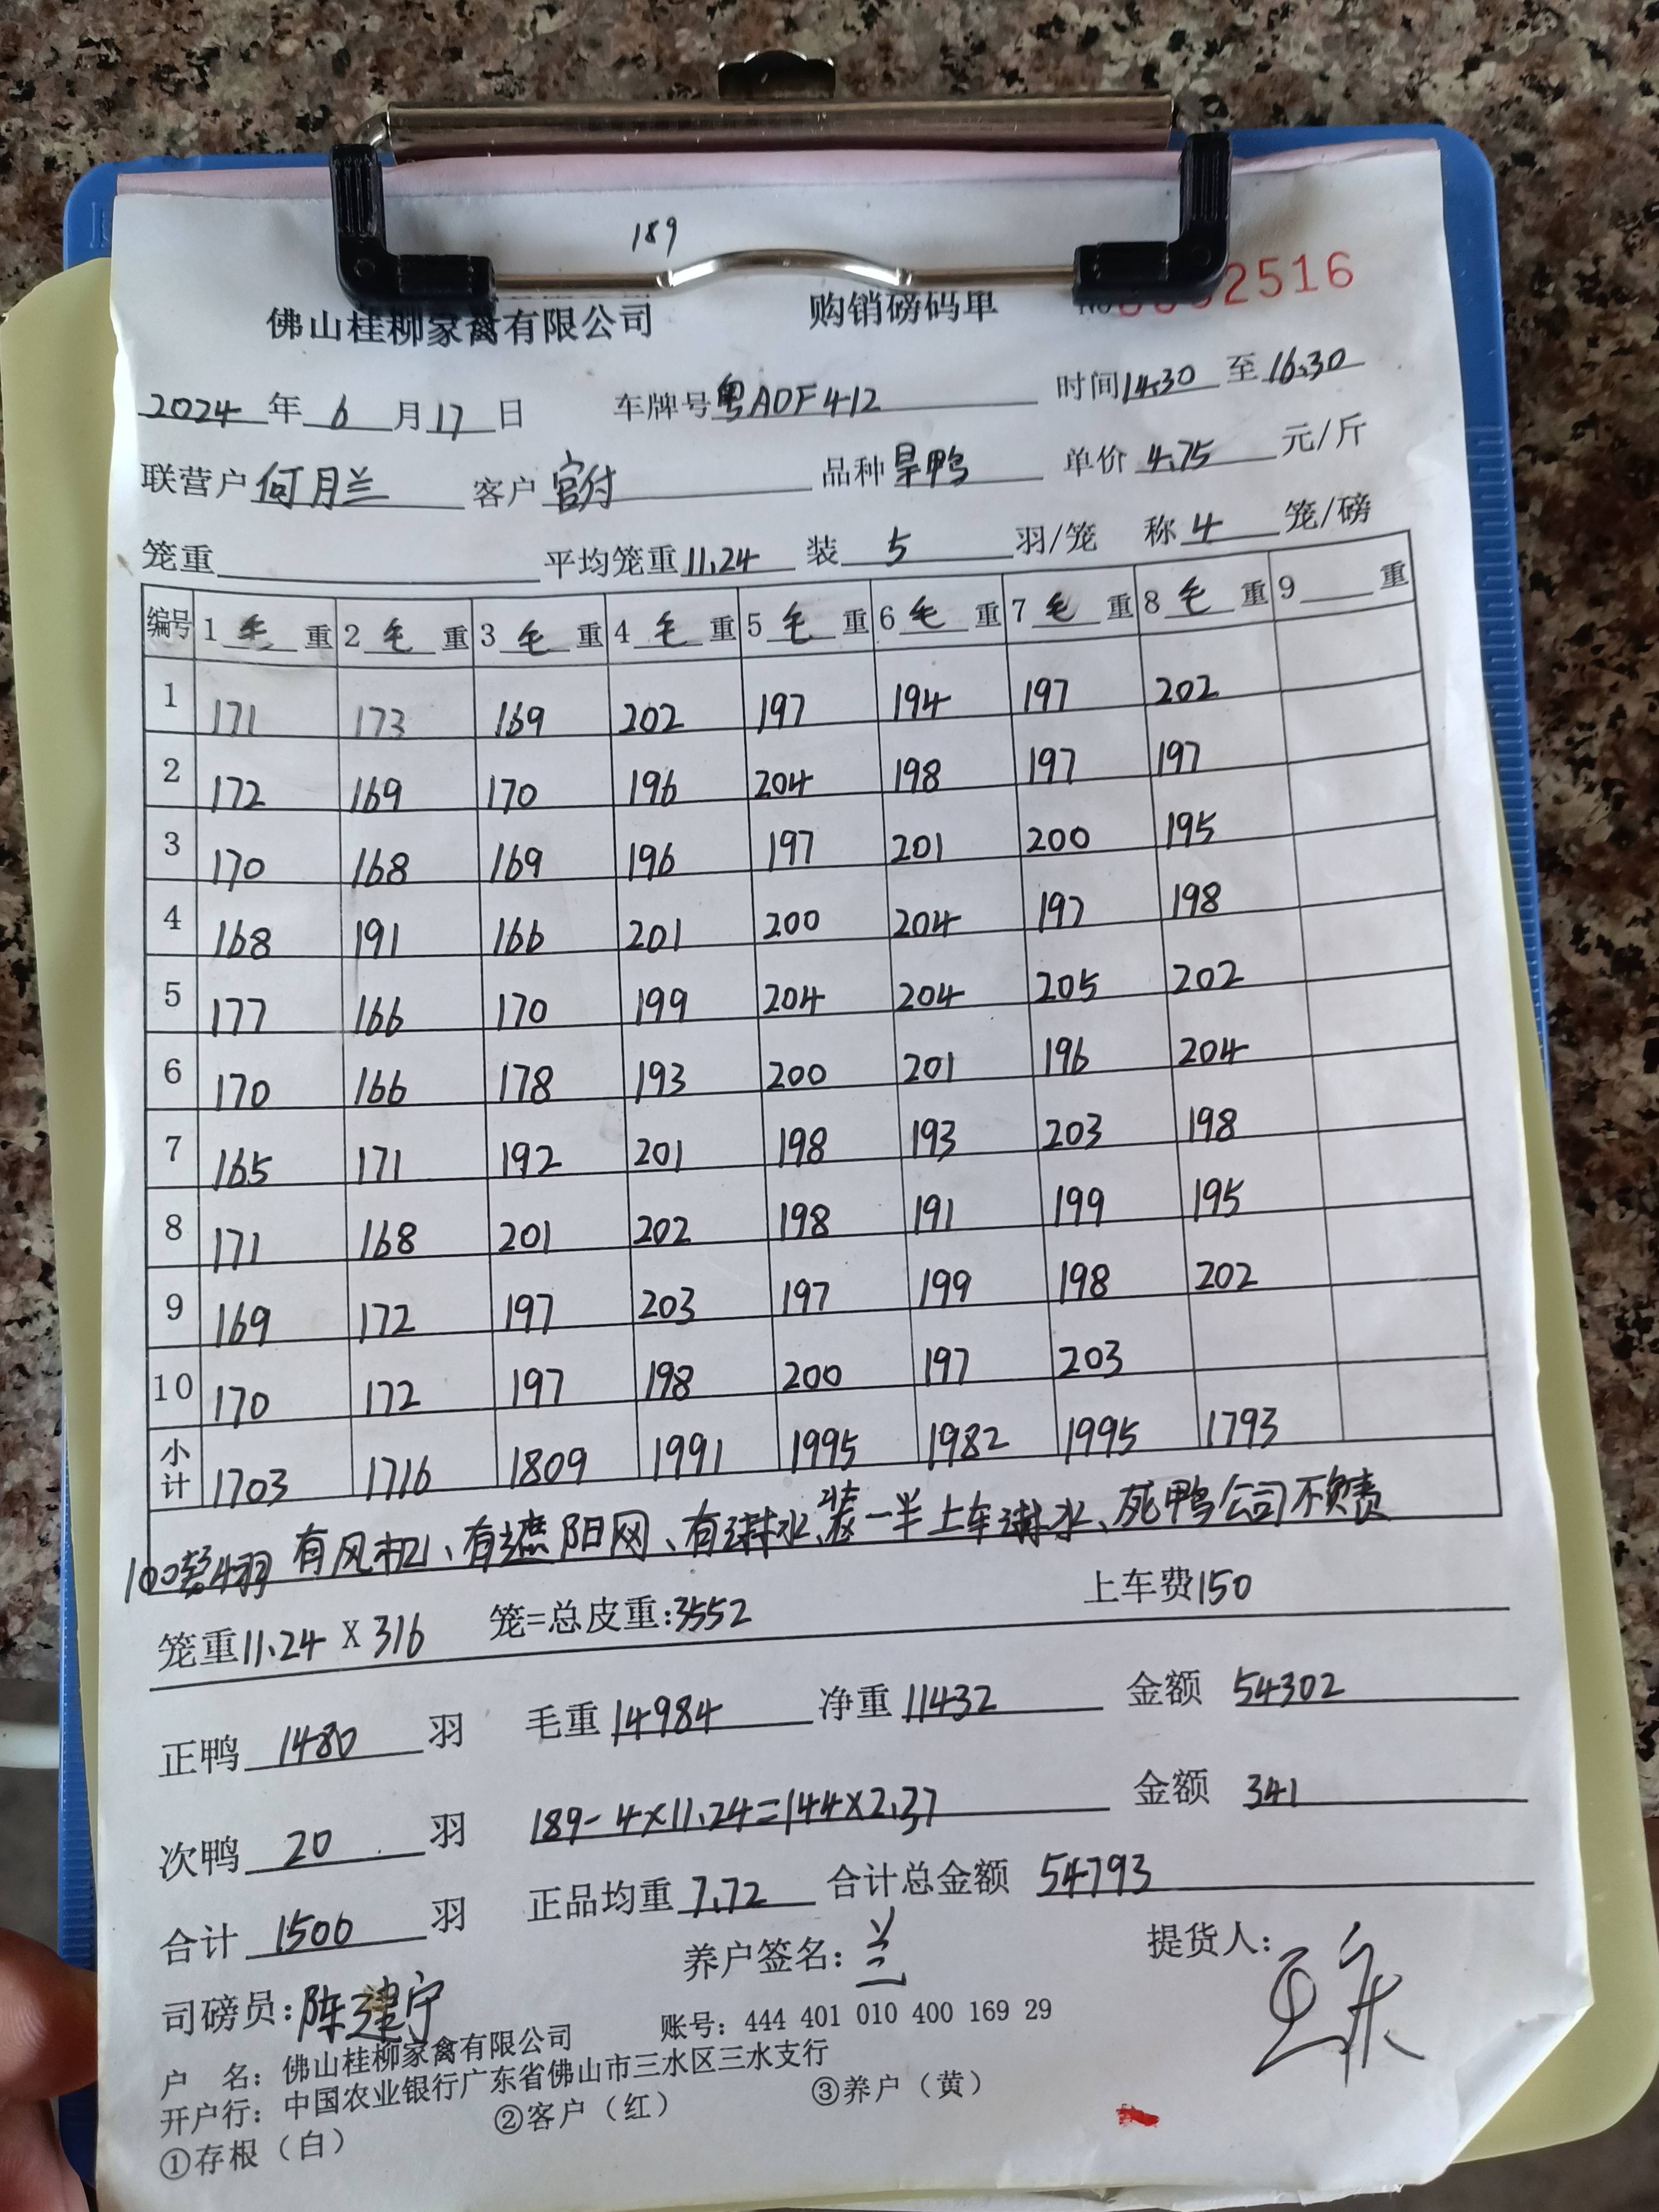 189
佛山桂柳家禽有限公司 购销磅码单 2516
2024年6月17日 车牌号粤A0F412 时间14:30至16:30
联营户何月兰 客户官付 品种旱鸭 单价4.75元/斤
笼重 平均笼重11.24 装5羽/笼 称4笼/磅
编号 1毛重 2毛重 3毛重 4毛重 5毛重 6毛重 7毛重 8毛重 9重
1 171 173 169 202 197 194 197 202
2 172 169 170 196 204 198 197 197
3 170 168 169 196 197 201 200 195
4 168 191 166 201 200 204 197 198
5 177 166 170 199 204 204 205 202
6 170 166 178 193 200 201 196 204
7 165 171 192 201 198 193 203 198
8 171 168 201 202 198 191 199 195
9 169 172 197 203 197 199 198 202
10 170 172 197 198 200 197 203
小计 1703 1716 1809 1991 1995 1982 1995 1793
有风机、有遮阳网、有淋水、装一半上车淋水、死鸭公司不负责
笼重11.24X316 笼=总皮重:3552 上车费150
正鸭1480羽 毛重14984 净重11432 金额54302
次鸭20羽 189-4×11.24=144×2.37 金额341
合计1500羽 正品均重7.72 合计总金额54793
司磅员:陈建宁 养户签名:兰 提货人:
户 名:佛山桂柳家禽有限公司 账号:444 401 010 400 169 29
开户行:中国农业银行广东省佛山市三水区三水支行
①存根（白） ②客户（红） ③养户（黄）